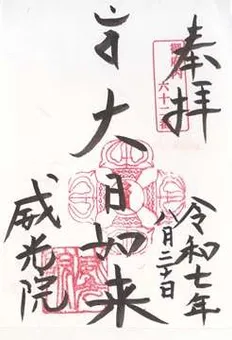 奉拝
御府内
六十一番
令和七年
八月二十日
大日如来
威光院